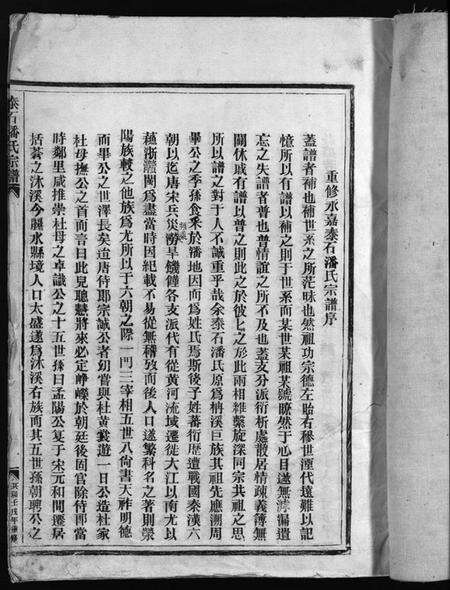 重修永嘉泰石潘氏宗譜序
蓋譜者補也補世系之所茫昧也然祖功宗德左昭右穆世湮代遠難以記
憶所以有譜以補之則于世系而某世某祖某號瞭然于心目遂無滲漏遺
忘之失譜者普也普情誼之所不及也蓋支分派衍析處散居情疎義薄無
關休戚有譜以普之則此之於彼匕之於此兩相維繫旋深同宗共祖之思
所以譜之對于人不誠重乎哉余泰石潘氏原爲柄溪巨族其祖先應溯周
畢公之季孫食采於潘地因而爲姓氏焉斯後子姓蕃衍歷遭戰國秦漢六
朝以迄唐宋兵災澇旱饑饉各支派代有從黃河流域遷徙大江以南尤以
越浙贛閩爲盡當時因紀載不易從無稽攷而後人口遂繁科名之著則滎
陽族較之他族爲尤所以于六朝之際一門三宰相五世八尙書天祚明德
而畢公之世澤長矣迨唐侍郎宗誠公者幼嘗與杜黃裳遊一日公造杜家
杜母撫公之首而言曰此兒聰慧將來必定崢嶸於朝廷後固官除侍郎當
時鄰里咸推崇杜母之卓識公之十五世孫曰孟陽公复于宋元和間遷居
括蒼之沐溪今麗水縣境人口太盛遂爲沐溪右族而其五世孫朝聘公之
泰石潘氏宗譜